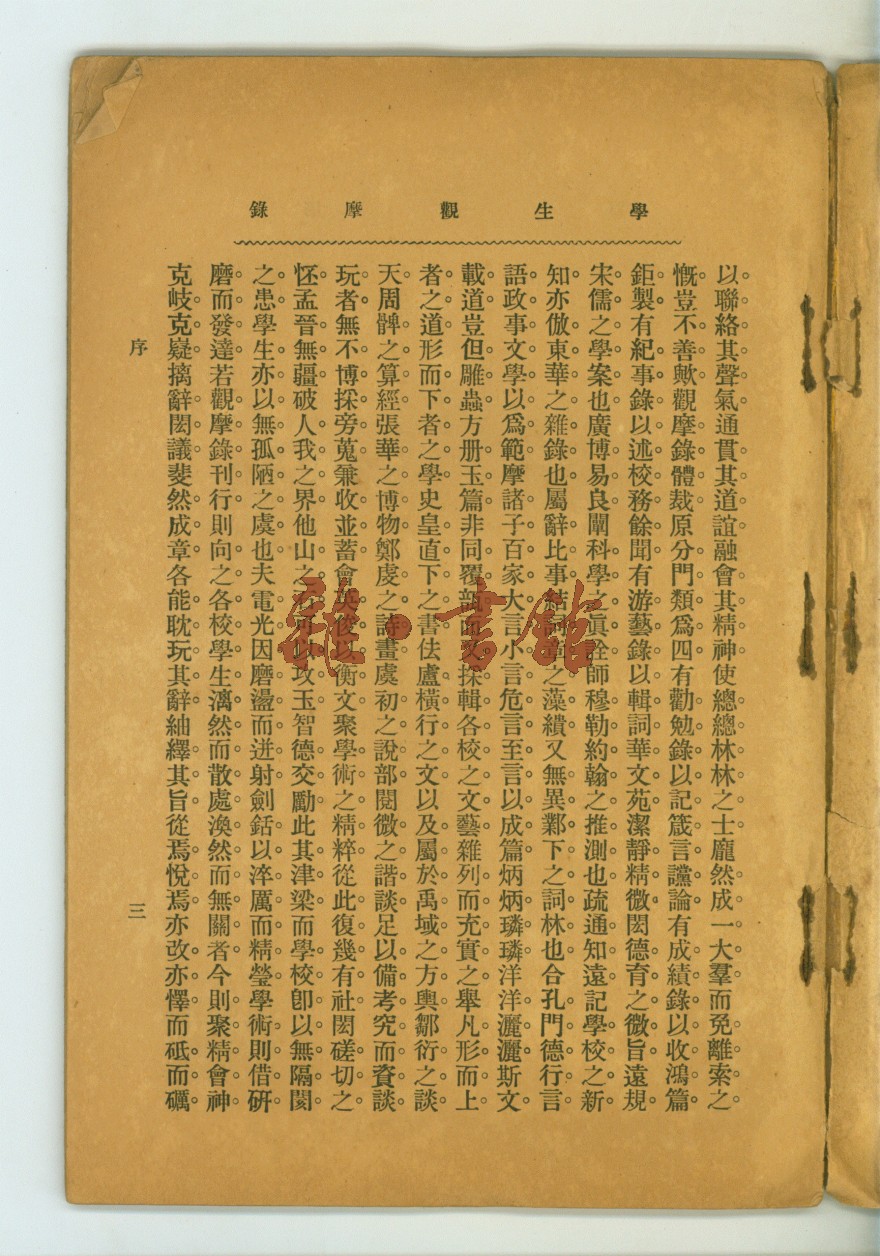 學生觀摩錄
以聯絡其聲氣通貫其道誼融會其精神使總總林林之士龐然成一大羣而免離索之
慨豈不善歟觀摩錄體裁原分門類爲四有勸勉錄以記箴言讜論有成績錄以收鴻篇
鉅製有紀事錄以述校務餘聞有游藝錄以輯詞華文苑潔靜精微閎德育之微旨遠規
宋儒之學案也廣博易良闡科學之眞詮師穆勒約翰之推測也疏通知遠記學校之新
知亦倣東華之雜錄也屬辭比事結詞章之藻繢又無異鄴下之詞林也合孔門德行言
語政事文學以爲範摩諸子百家大言小言危言至言以成篇炳炳璘璘洋洋灑灑斯文
載道豈但雕蟲方册玉篇非同覆瓿而又採輯各校之文藝雜列而充實之舉凡形而上
者之道形而下者之學史皇直下之書佉盧橫行之文以及屬於禹域之方輿鄒衍之談
天周髀之算經張華之博物鄭虔之詩畫虞初之說部閱微之諧談足以備考究而資談
玩者無不博採旁蒐兼收並蓄會英俊以衡文聚學術之精粹從此復幾有社閎磋切之
怌孟晉無疆破人我之界他山之石可以攻玉智德交勵此其津梁而學校卽以無隔閡
之患學生亦以無孤陋之虞也夫電光因磨盪而迸射劍銛以淬厲而精瑩學術則借硏
磨而發達若觀摩錄刊行則向之各校學生漓然而散處渙然而無關者今則聚精會神
克岐克嶷摛辭閎議斐然成章各能耽玩其辭紬繹其旨從焉悅焉亦改亦懌而砥而礪
序
三
雅·書館